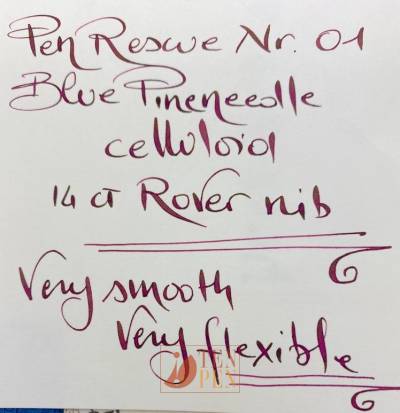 Pen Rescue Nr. 01
Blue Pineneedle
celluloid
14 ct Rover nib
Very smooth
Very flexible
TEN
PEN